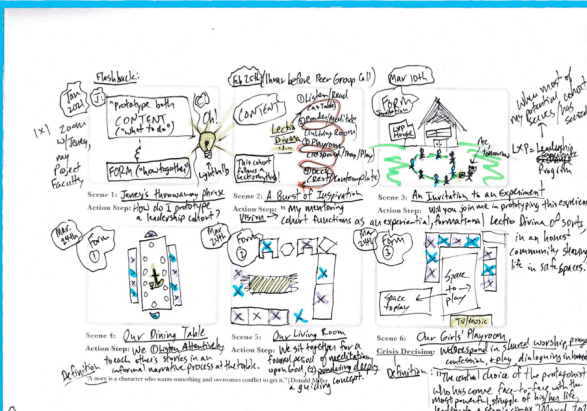 Flashback:
Jan 2021
J:
"Prototype both
CONTENT
("what to do")
&
FORM ("how together")
C:
Oh!
Lightbulb
(1x) Zoom
w/Jeney,
my
Project
Faculty
Scene 1: Jeney's throwaway phrase
Action Step: How do I prototype
a leadership cohort?
Feb 25th (1 hour before Peer Group Call)
CONTENT
Lectio
Divina
This cohort
follows a
① Listen/Read
(at Table)
② Ponder/meditate
(in Living Room)
③ Playroom
(Respond/Pray/Play)
④ Deck
(Rest/Contemplate)
Scene 2: A Burst of Inspiration
Action Step: "My mentoring
Vision cohort functions as an experiential, formational Lectio Divina of sorts,
in an honest
community sharing
life in safe spaces.
Mar 10th
FORM
LXP
House
Me,
tomorrow
When most of
my potential cohort
has served
LXP = Leadership
Program
Scene 3: An Invitation to an Experiment
Action Step: Will you join me in prototyping this experience
Mar 24th
Form
1
Scene 4: Our Dining Table
Action Step: We ① Listen Attentively
Definition to each other's stories in an
informal narrative process at the table.
"A story is a character who wants something and overcomes conflict to get it." (Donald Miller
Mar 24th
Form
2
Scene 5: Our Living Room
Action Step: We sit together for a
formed period of meditation
upon God, ② pondering deeply
a guiding concept.
Mar 24th
Form
3
Space
to
play
Space
to play
TV/Music
Scene 6: Our Girls' Playroom
Crisis Decision: We respond in shared worship,
confession, + play dialoguing
Definition: "The central choice of the protagonist
who has come face-to-face with the
most powerful struggle of his/her life